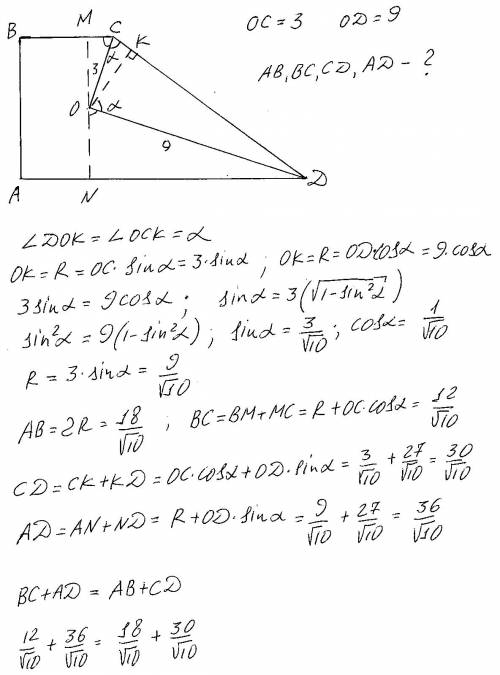 OC=3 OD=9
AB, BC, CD, AD - ?
B M C K
α
3
O α
9
A N D
∠DOK=∠OCK=α
OK=R=OC·sinα=3·sinα ; OK=R=ODcosα=9·cosα
3sinα=9cosα ; sinα=3(√1-sin²α)
sin²α=9(1-sin²α) ; sinα=3/√10 ; cosα=1/√10
R=3·sinα=9/√10
AB=2R=18/√10 ; BC=BM+MC=R+OC·cosα=12/√10
CD=CK+KD=OC·cosα+OD·sinα=3/√10+27/√10=30/√10
AD=AN+ND=R+OD·sinα=9/√10+27/√10=36/√10
BC+AD=AB+CD
12/√10+36/√10=18/√10+30/√10